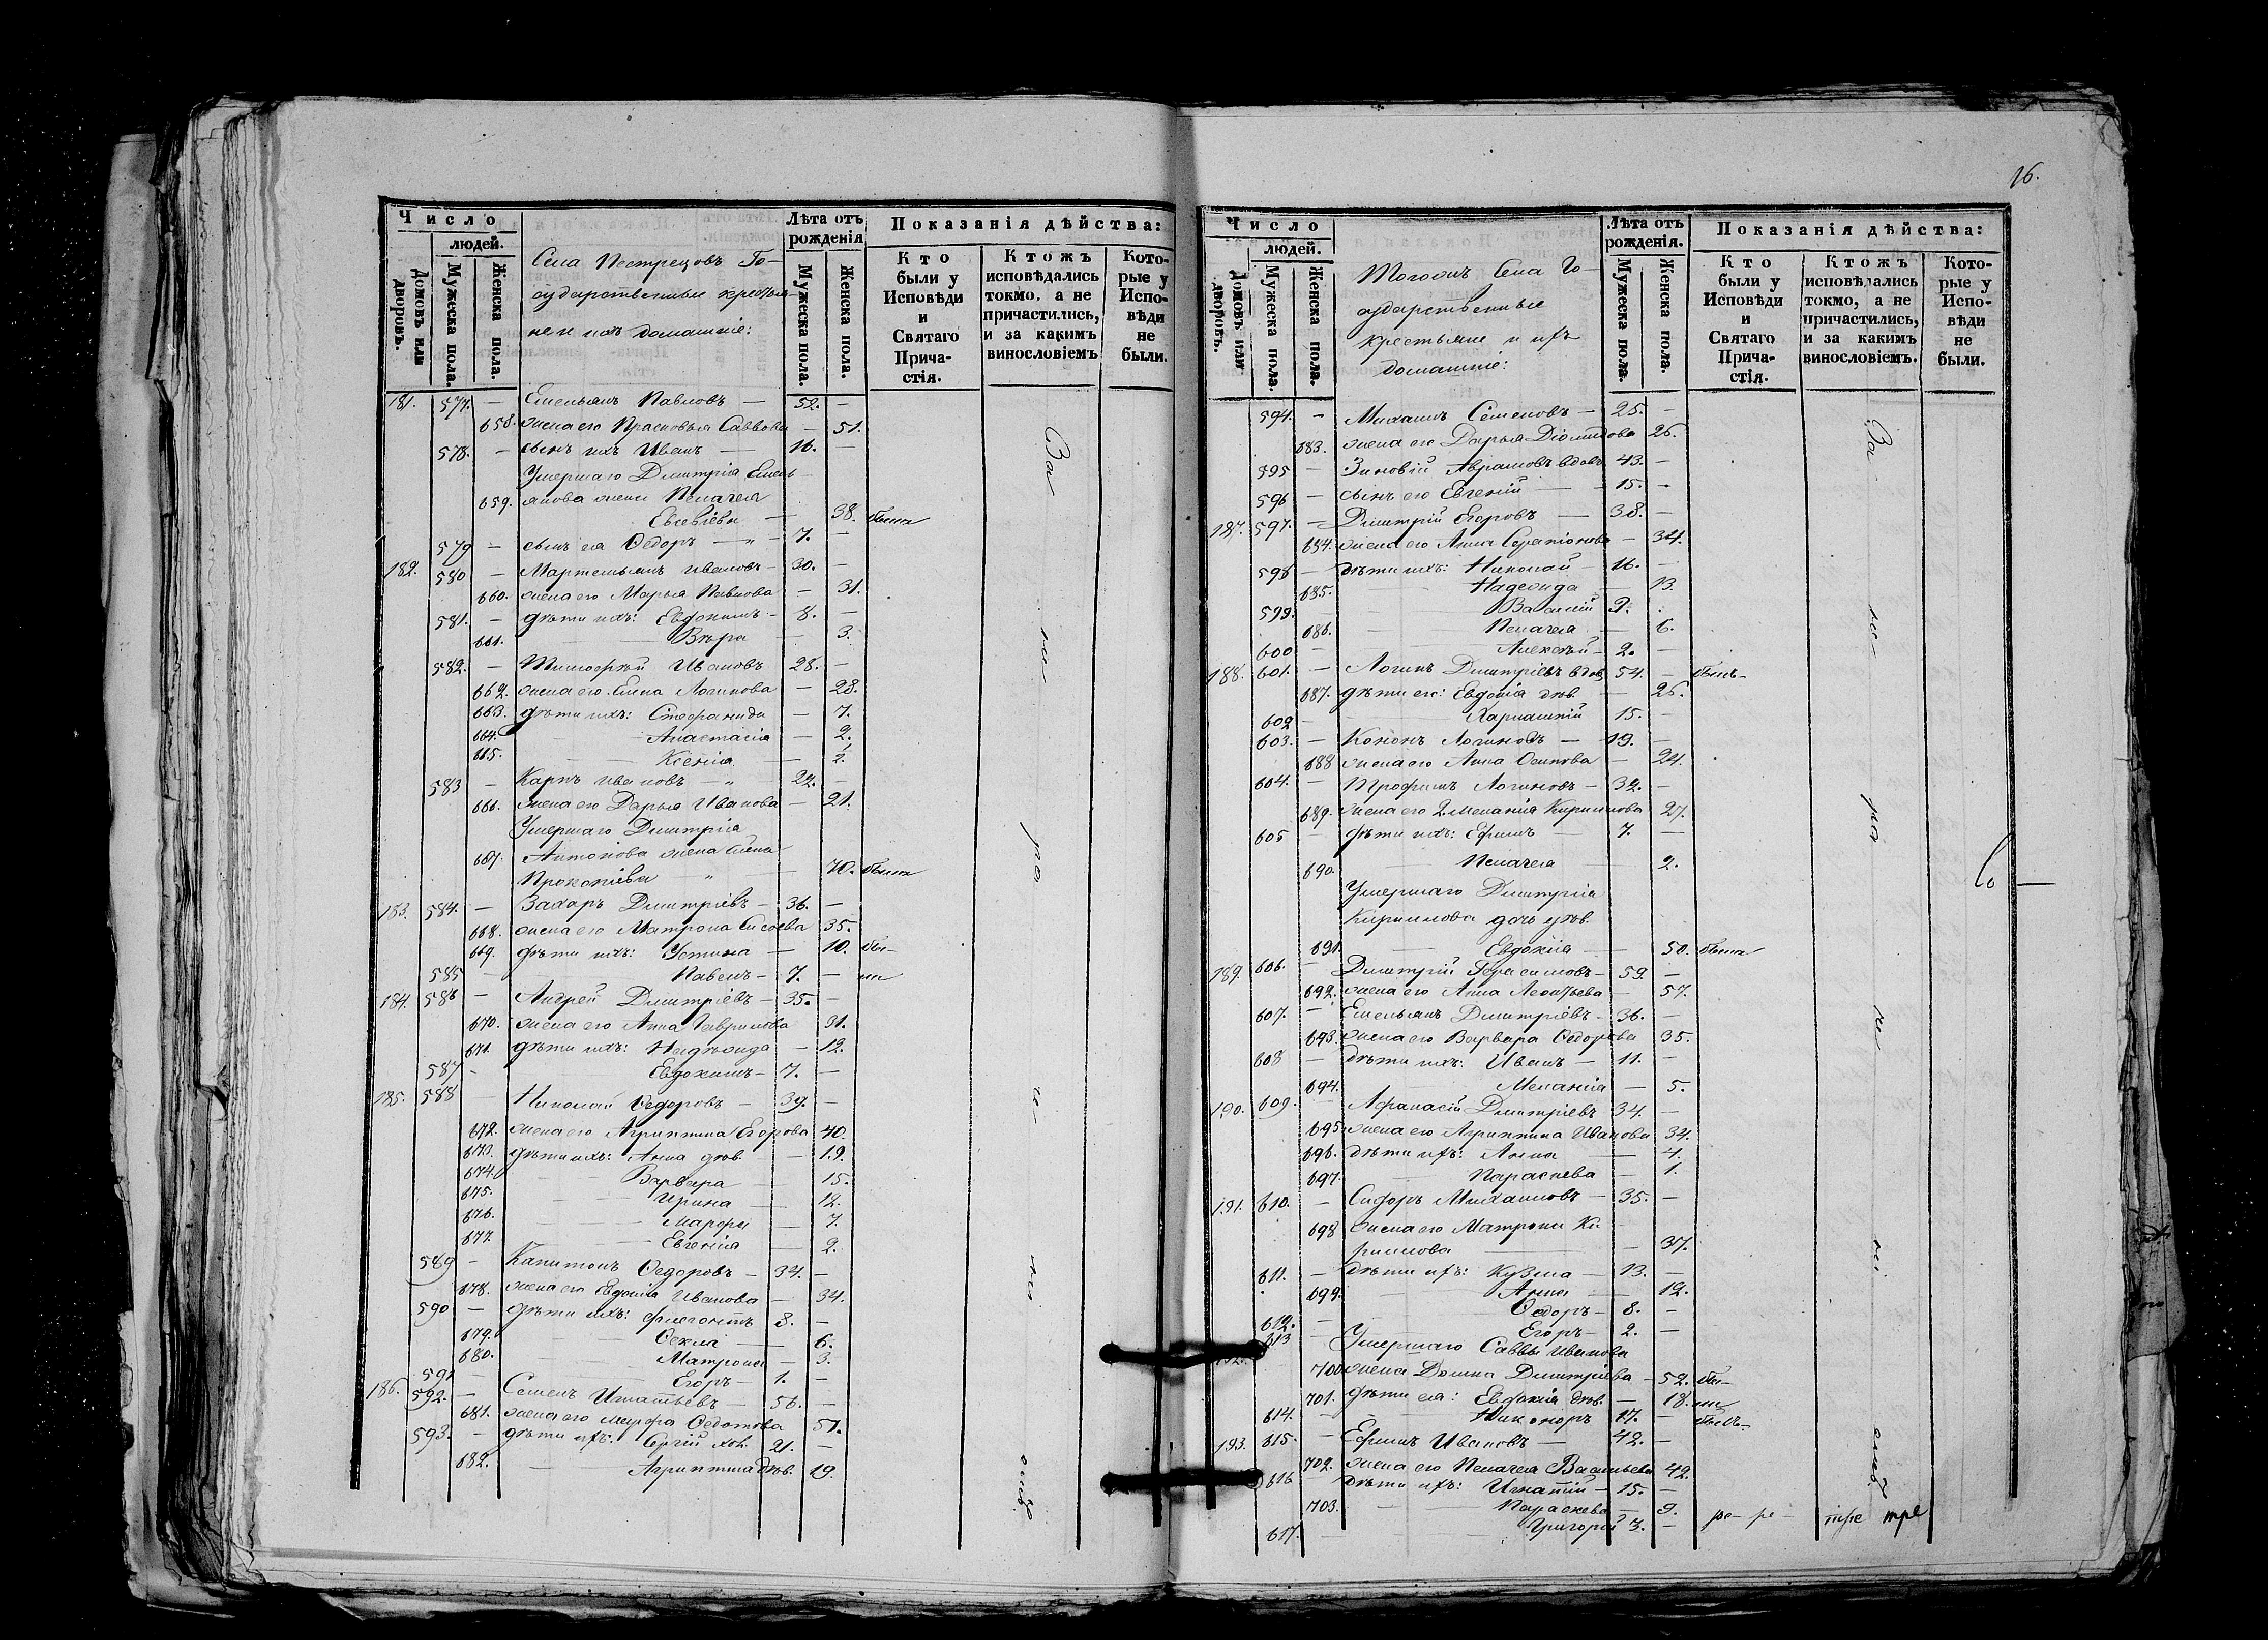 Число
людей.
Домовъ или дворовъ.
Мужеска пола.
Женска пола.
Села Пестрецовъ Го-
сударственные крестья-
не и ихъ домашніе:
Лѣта отъ рожденія
Мужеска пола.
Женска пола.
Показанія дѣйства:
Кто были у Исповѣди и Святаго Прича-стія.
Ктожъ исповѣдались токмо, а не причастились, и за какимъ винословіемъ
Кото-рые у Испо-вѣди не были.
181. 577. — Емельянъ Павловъ — 52. —
658. жена его Прасковья Саввова — 51.
578. — сынъ ихъ Иванъ — 16. —
Умершаго Димитрія Емель-
659. янова жена Пелагея
Евсевіева — 38. была
579 — сынъ ея Ѳедоръ — 7. —
182. 580 — Мартемьянъ Ивановъ — 30. —
660. жена его Марья Павлова — 31.
581. — дѣти ихъ: Евдокимъ — 8. —
661. Вѣра — 3.
582. — Тимофѣй Ивановъ 28. —
662. жена его Елена Логинова — 28.
663. дѣти ихъ: Стефанида — 7.
664. Анастасія — 2.
665. Ксенія — 2.
583 — Карпъ Ивановъ — 22. —
666. жена его Дарья Иванова — 21.
Умершаго Димитрія
667. Антонова жена Елена
Прокопіева — 70. была
183. 584. — Захаръ Димитріевъ — 36. —
668. жена его Матрона Сисоева 35.
669. дѣти ихъ: Устина — 10. бы-
585 Павелъ — 7. — ли
184. 586 — Андрей Димитріевъ — 35. —
670. жена его Анна Гаврилова 31.
671. дѣти ихъ: Надежда — 12.
587 — Евдокимъ — 7. —
185. 588 — Николай Ѳедоровъ — 39. —
672. жена его Агриппина Егорова 40.
673. дѣти ихъ: Анна дѣв. — 19.
674. Варвара — 15.
675. Ирина — 12.
676. Марфа — 7.
677. Евгенія — 2.
589 — Капитонъ Ѳедоровъ — 34. —
678. жена его Евдокія Иванова — 34.
590 — дѣти ихъ: Флегонтъ 8. —
679. Ѳекла — 6.
680. Матрона — 3.
591 — Егоръ — 1. —
186. 592. — Семенъ Игнатьевъ — 56. —
681. жена его Марфа Ѳедотова 51.
593. — дѣти ихъ: Сергій хол. 21. —
682. — Агриппина дѣв. 19.
За не мо ис
16.
Число
людей.
Домовъ или дворовъ.
Мужеска пола.
Женска пола.
Тогожъ Села Го-
сударственные
крестьяне и ихъ
домашніе:
Лѣта отъ рожденія.
Мужеска пола.
Женска пола.
Показанія дѣйства:
Кто были у Исповѣди и Святаго Прича-стія.
Ктожъ исповѣдались токмо, а не причастились, и за какимъ винословіемъ.
Кото-рые у Испо-вѣди не были.
594. — Михаилъ Семеновъ — 25. —
683. жена его Дарья Діомидова 26.
595 — Зиновій Аврамовъ вдовъ 43. —
596 — сынъ его Евгеній — 15. —
187. 597. — Димитрій Егоровъ — 38. —
684. жена его Анна Серапіонова — 34.
598 — дѣти ихъ: Николай — 16. —
685. Надежда 13.
599. Василій 9.
686. Пелагея — 6.
600 Алексѣй — 2. —
188. 601. — Логинъ Димитріевъ вдов. 54. — былъ
687. дѣти его: Евдокія дѣв. — 26.
602 — Харлампій 15. —
603. — Кононъ Логиновъ — 19. —
688 жена его Анна Осипова — 24.
604. — Трофимъ Логиновъ — 32. —
689. жена его 2. Меланія Кирилова 27.
605 — дѣти ихъ: Ефимъ — 7. —
690. Пелагея 2.
Умершаго Димитрія
Кирилова дочь дѣв.
691. Евдокія — 50. была
189. 606. — Димитрій Герасимовъ — 59. —
692. жена его Анна Леонтьева — 57.
607. — Емельянъ Димитріевъ — 36. —
693. жена его Варвара Ѳедорова 35.
608 — дѣти ихъ: Иванъ — 11. —
694. Меланія — 5.
190. 609. — Афанасій Димитріевъ 34. —
695 жена его Агриппина Иванова 34.
696. дѣти ихъ: Анна — 4.
697. Параскева — 1.
191. 610. — Сидоръ Михаиловъ — 35. —
698 жена его Матрона Ки-
рилова — 37.
611. — дѣти ихъ: Кузьма — 13. —
699. Анна — 12.
612. — Ѳедоръ — 8. —
613 Егоръ — 2. —
192. Умершаго Саввы Иванова
700 жена Домна Димитріева — 52. бы-
701. дѣти ея: Евдокія дѣв. — 18. ли
614. — Никаноръ 17. — былъ
193. 615. — Ефимъ Ивановъ — 42. —
702. жена его Пелагея Васильева 42.
616 дѣти ихъ: Игнатій — 15. —
703. — Параскева — 9.
617. — Григорій 3. —
За не мо